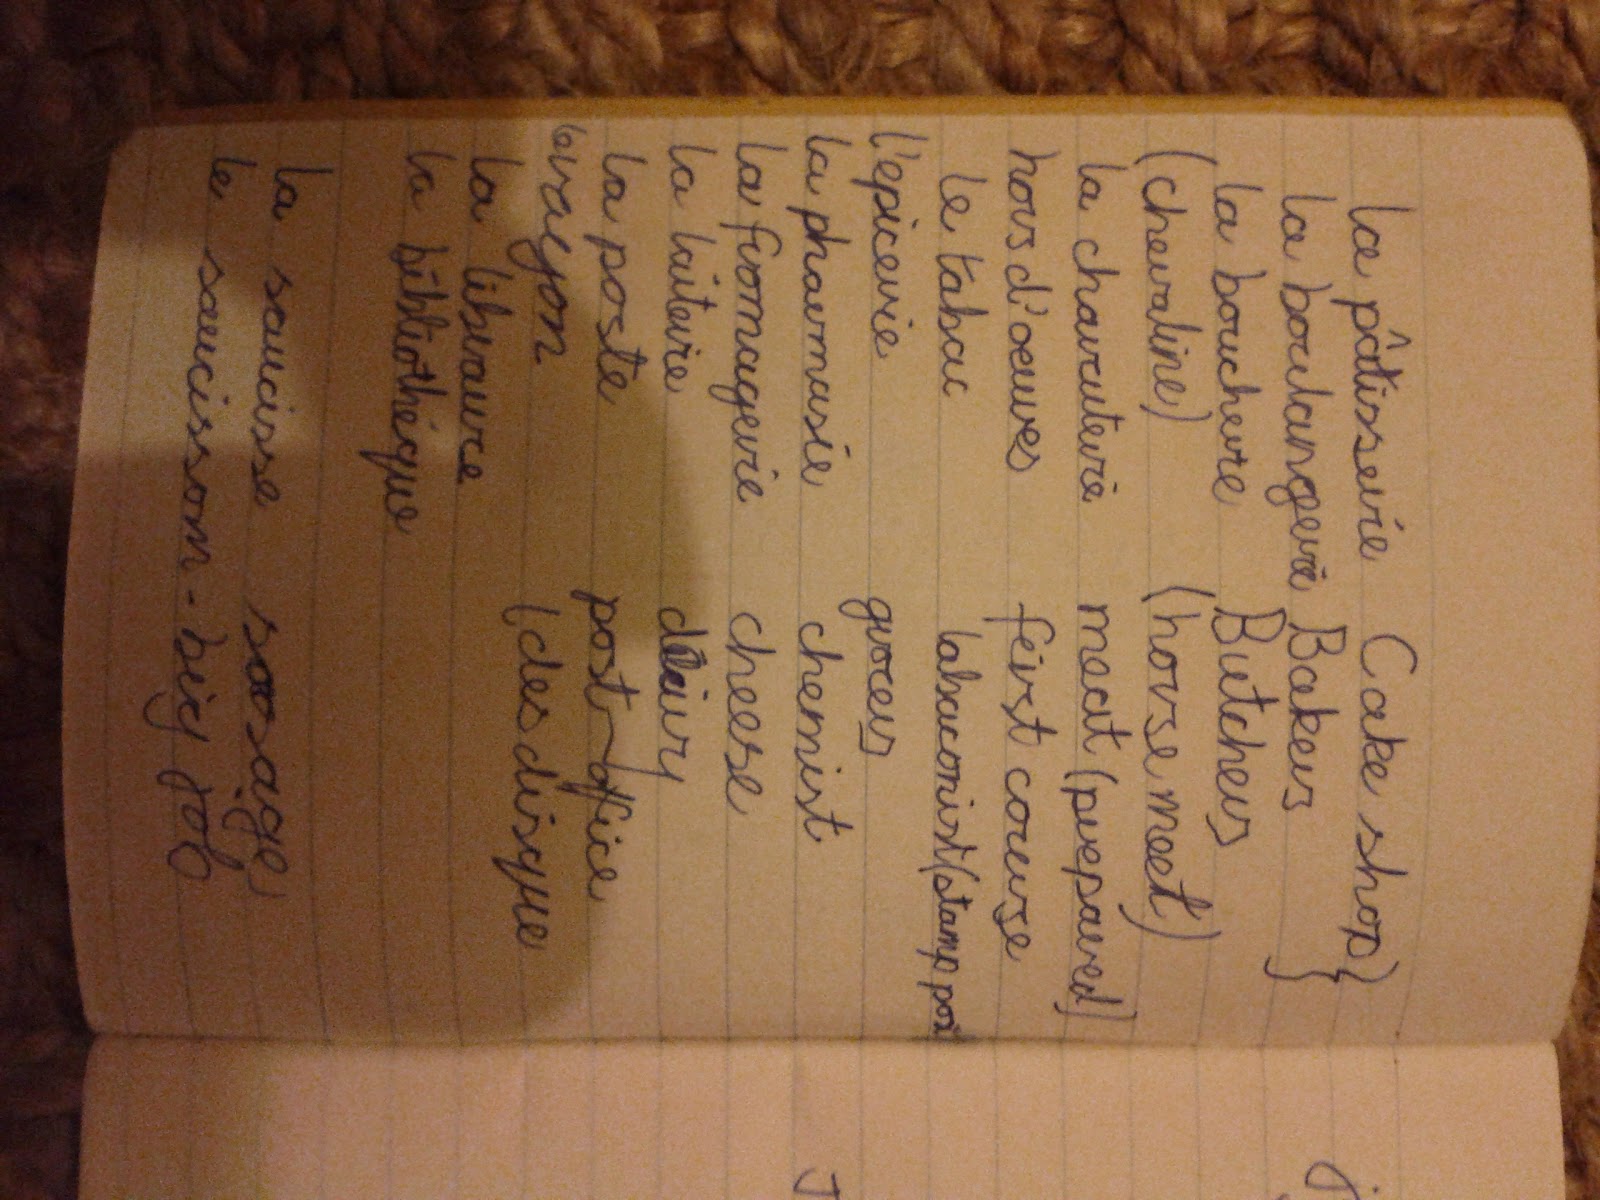 la pâtisserie Cake shop }
la boulangerie Bakers }
la boucherie Butchers
(chevaline) (horse meet)
la charcuterie meat (prepared)
hors d'oeuvres first course
le tabac tabaconist (stamp post
l'epicerie grocer
la pharmasie chemist
la fromagerie cheese
la laiterie dairy
la poste post-office
le rayon (des disque
la librairie
la bibliothéque
la saucisse sosage
le saucisson - big job